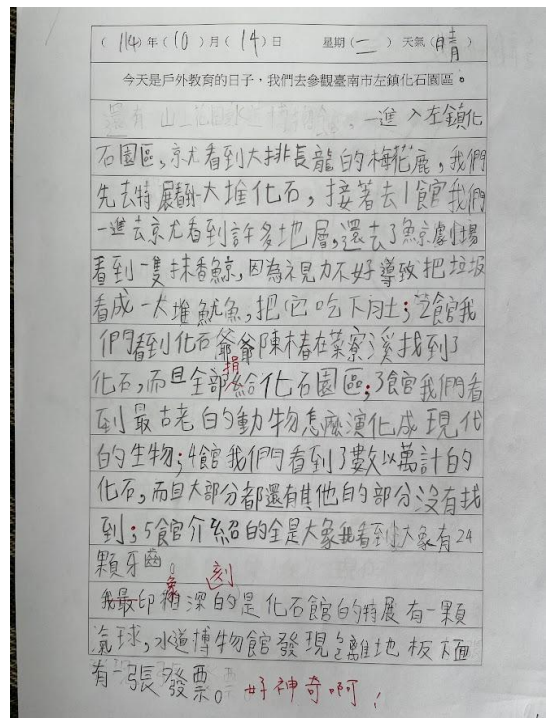 (114)年(10)月(14)日 星期(二) 天氣(晴)
今天是戶外教育的日子，我們去參觀臺南市左鎮化石園區。
還有山上花園水道博物館。一進入左鎮化
石園區，就看到大排長龍的梅花鹿，我們
先去特展看到一大堆化石，接著去1館我們
一進去就看到許多地層，還去了鯨劇場
看到一隻抹香鯨，因為視力不好導致把垃圾
看成一大堆魷魚，把它吃下肚；2館我
們看到化石爺爺陳椿在菜寮溪找到了
化石，而且全部捐給化石園區；3館我們看
到最古老的動物怎麼演化成現代
的生物；4館我們看到了數以萬計的
化石，而且大部分都還有其他的部分沒有找
到；5館介紹的全是大象我看到大象有24
顆牙齒。
我最印象深刻的是化石館的特展有一顆
氣球，水道博物館發現離地板下面
有一張發票。好神奇啊！